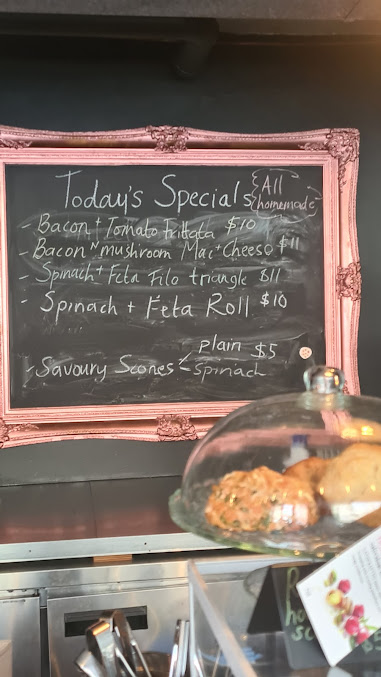 Today's Specials
All homemade
- Bacon + Tomato Frittata $10
- Bacon N mushroom Mac + Cheese $11
- Spinach + Feta Filo triangle $11
- Spinach + Feta Roll $10
- Savoury Scones - Plain $5
- Spinach